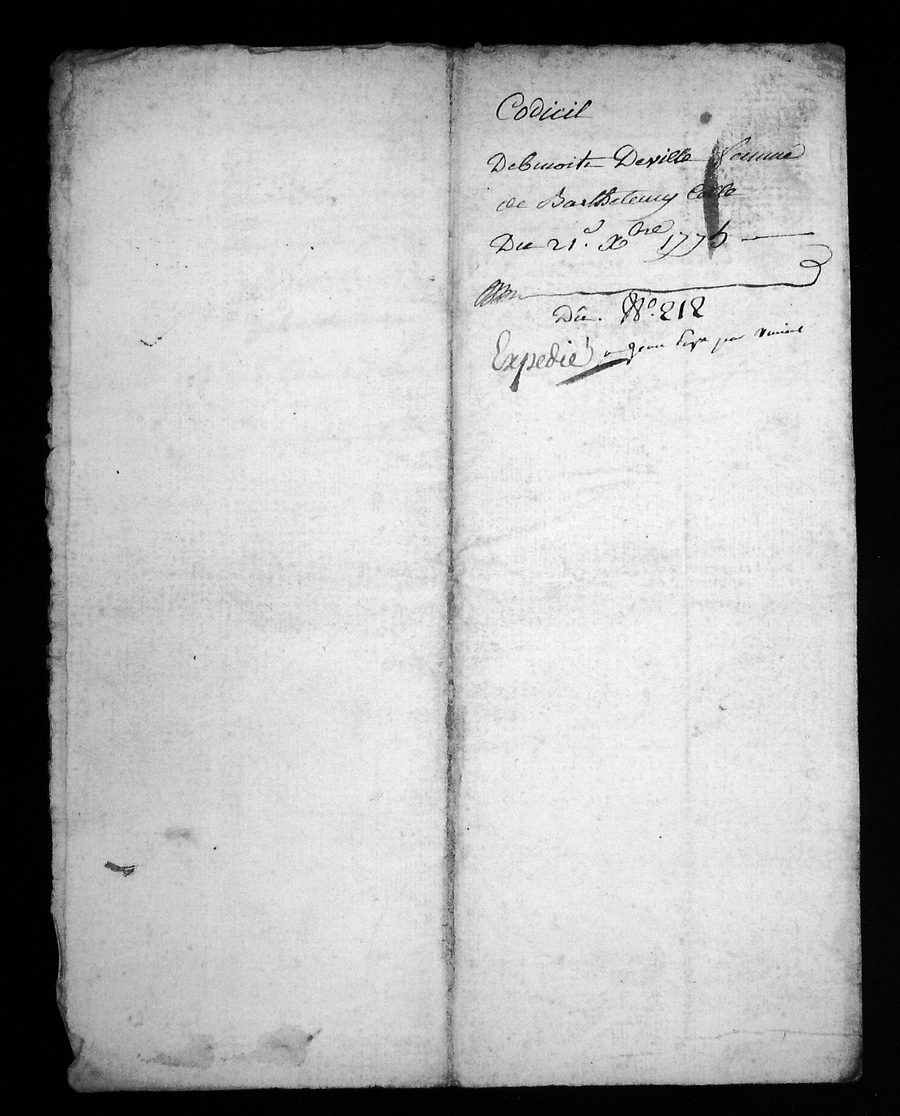 Codicil
Debenoite Deville femme
de Barthelemy
Du 21.e Xbre 1775
Du. No. 212
Expedié a jean